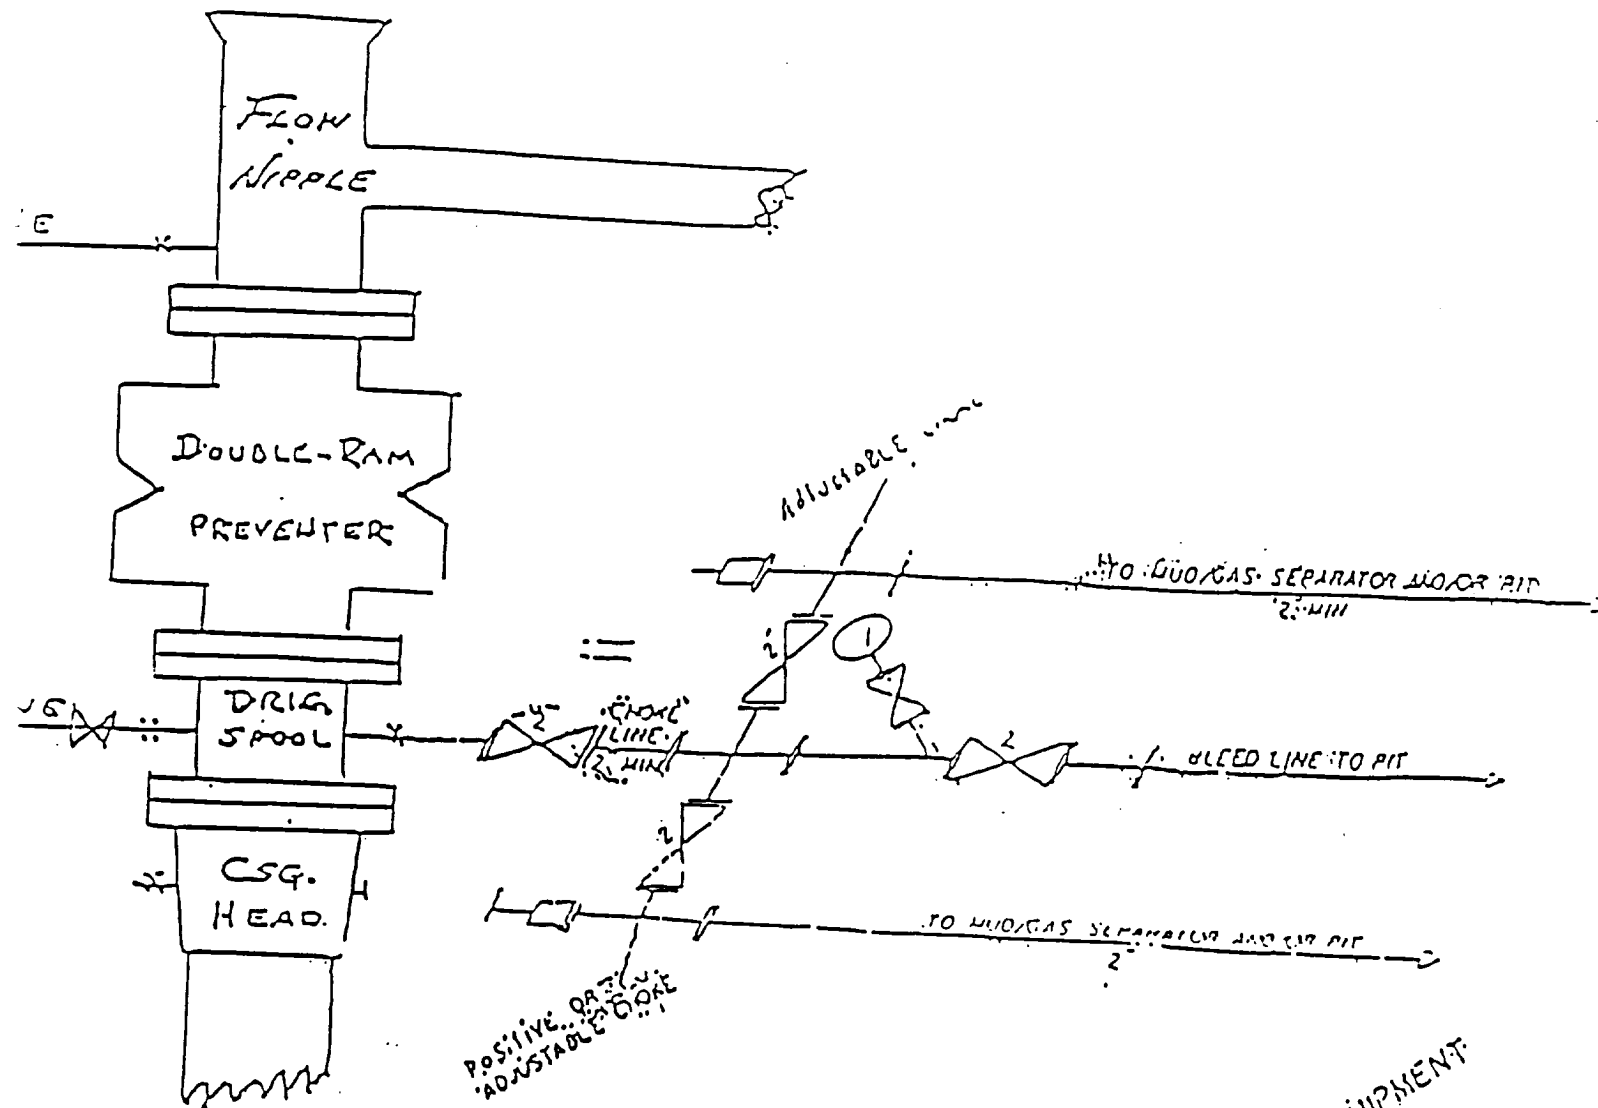 FLOW
NIPPLE
E
DOUBLE-RAM
PREVENTER
ADJUSTABLE
TO MUD/GAS SEPARATOR AND/OR PIT
2" MIN
2"
1
DRLG
SPOOL
2"
"CHOKE"
LINE
2" MIN
2
BLEED LINE TO PIT
2
CSG.
HEAD
TO MUD/GAS SEPARATOR AND/OR PIT
2"
POSITIVE OR
ADJUSTABLE CHOKE